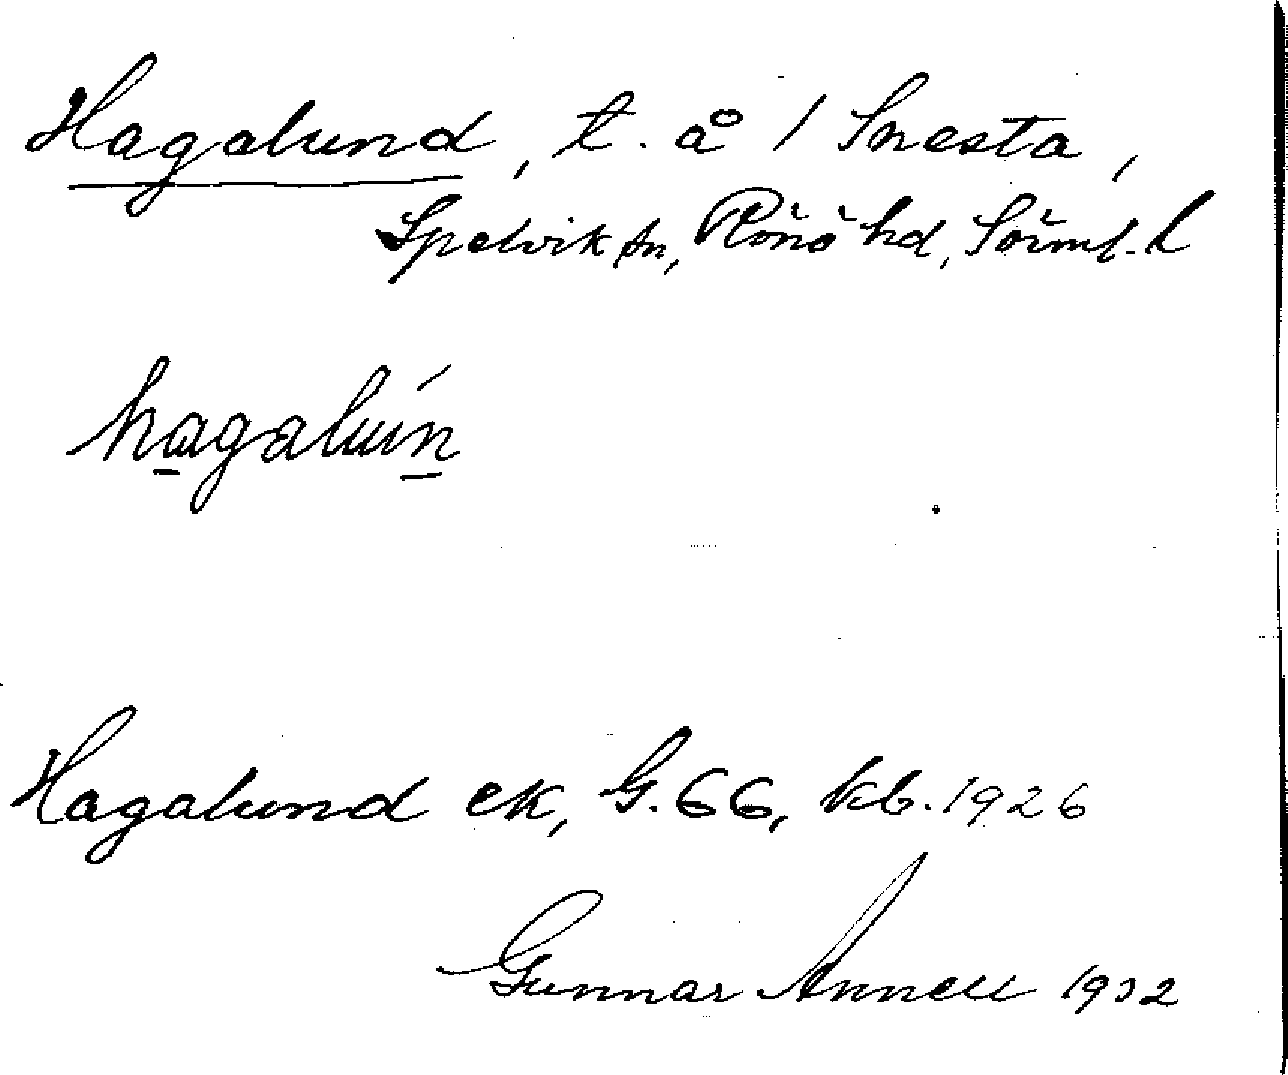 Hagalund, t. å 1 Snesta,
Spelvik sn, Rönö hd, Sörml. l
hagalún
Hagalund ek, G. 66, kb. 1926
Gunnar Annell 1932